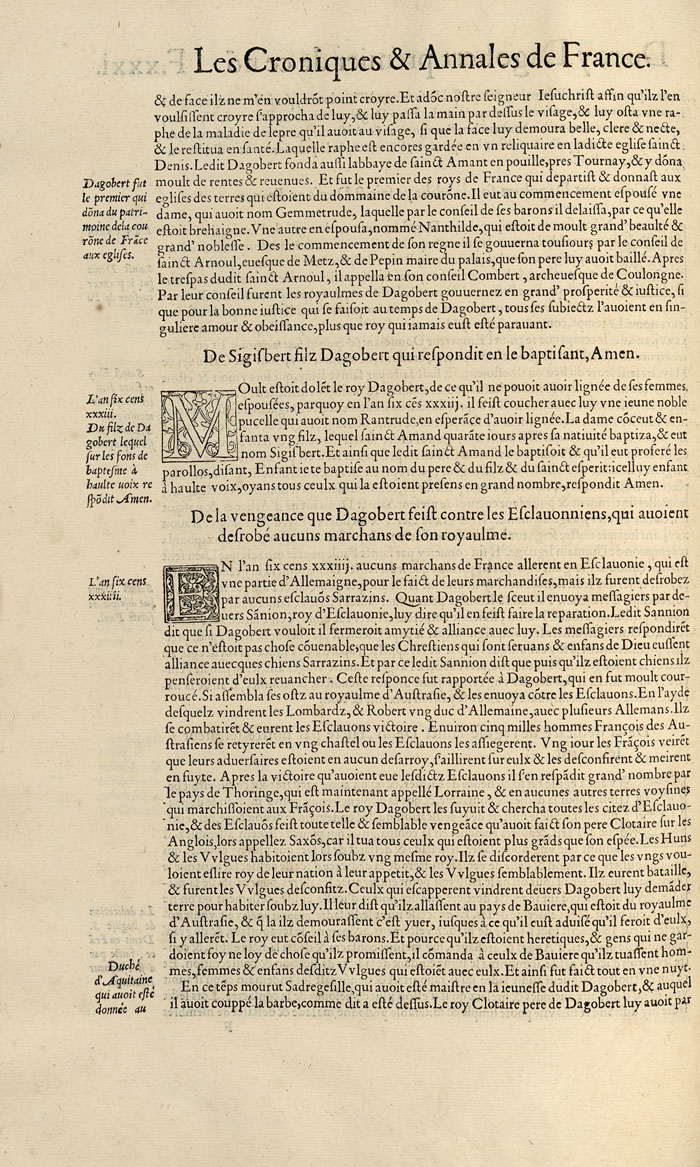 Les Croniques & Annales de France.
& de face ilz ne m'en vouldrōt point croyre. Et adōc nostre seigneur Iesuchrist affin qu'ilz l'en
voulsissent croyre s'approcha de luy, & luy passa la main par dessus le visage, & luy osta vne ra-
phe de la maladie de lepre qu'il auoit au visage, si que la face luy demoura belle, clere & necte,
& le restitua en santé. Laquelle raphe est encores gardée en vn reliquaire en ladicte eglise sainct
Denis. Ledit Dagobert fonda aussi labbaye de sainct Amant en pouille, pres Tournay, & y dōna
moult de rentes & reuenues. Et fut le premier des roys de France qui departist & donnast aux
eglises des terres qui estoient du dommaine de la courōne. Il eut au commencement espousé vne
dame, qui auoit nom Gemmetrude, laquelle par le conseil de ses barons il delaissa, par ce qu'elle
estoit brehaigne. Vne autre en espousa, nommé Nanthilde, qui estoit de moult grand' beaulté &
grand' noblesse. Des le commencement de son regne il se gouuerna tousiours par le conseil de
sainct Arnoul, euesque de Metz, & de Pepin maire du palais, que son pere luy auoit baillé. Apres
le trespas dudit sainct Arnoul, il appella en son conseil Combert, archeuesque de Coulongne.
Par leur conseil furent les royaulmes de Dagobert gouuernez en grand' prosperité & iustice, si
que pour la bonne iustice qui se faisoit au temps de Dagobert, tous ses subiectz l'auoient en sin-
guliere amour & obeissance, plus que roy qui iamais eust esté parauant.
Dagobert fut
le premier qui
dōna du patri-
moine dela cou
rōne de Frāce
aux eglises.
De Sigisbert filz Dagobert qui respondit en le baptisant, Amen.
L'an six cens
xxxiii.
Du filz de Da
gobert lequel
sur les fons de
baptesme à
haulte uoix re
spōdit Amen.
MOult estoit dolēt le roy Dagobert, de ce qu'il ne pouoit auoir lignée de ses femmes,
espousées, parquoy en l'an six cēs xxxiij. il feist coucher auec luy vne ieune noble
pucelle qui auoit nom Rantrude, en esperāce d'auoir lignée. La dame cōceut & en-
fanta vng filz, lequel sainct Amand quarāte iours apres sa natiuité baptiza, & eut
nom Sigisbert. Et ainsi que ledit sainct Amand le baptisoit & qu'il eut proferé les
parolles, disant, Enfant ie te baptise au nom du pere & du filz & du sainct esperit: icelluy enfant
à haulte voix, oyans tous ceulx qui la estoient presens en grand nombre, respondit Amen.
De la vengeance que Dagobert feist contre les Esclauonniens, qui auoient
desrobé aucuns marchans de son royaulme.
L'an six cens
xxxiiii.
EN l'an six cens xxxiiij. aucuns marchans de France allerent en Esclauonie, qui est
vne partie d'Allemaigne, pour le faict de leurs marchandises, mais ilz furent desrobez
par aucuns esclauōs Sarrazins. Quant Dagobert le sceut il enuoya messagiers par de-
uers Sānion, roy d'Esclauonie, luy dire qu'il en feist faire la reparation. Ledit Sannion
dit que si Dagobert vouloit il fermeroit amytié & alliance auec luy. Les messagiers respondirēt
que ce n'estoit pas chose cōuenable, que les Chrestiens qui sont seruans & enfans de Dieu eussent
alliance auecques chiens Sarrazins. Et par ce ledit Sannion dist que puis qu'ilz estoient chiens ilz
penseroient d'eulx reuancher. Ceste responce fut rapportée à Dagobert, qui en fut moult cour-
roucé. Si assembla ses ostz au royaulme d'Austrasie, & les enuoya cōtre les Esclauons. En l'ayde
desquelz vindrent les Lombardz, & Robert vng duc d'Allemaine, auec plusieurs Allemans. Ilz
se combatirēt & eurent les Esclauons victoire. Enuiron cinq milles hommes François des Au-
strasiens se retyrerēt en vng chastel ou les Esclauons les assiegerent. Vng iour les Frāçois veirēt
que leurs aduersaires estoient en aucun desarroy, s'aillirent sur eulx & les desconfirēt & meirent
en fuyte. Apres la victoire qu'auoient eue lesdictz Esclauons il s'en respādit grand' nombre par
le pays de Thoringe, qui est maintenant appellé Lorraine, & en aucunes autres terres voysines
qui marchissoient aux Frāçois. Le roy Dagobert les suyuit & chercha toutes les citez d'Esclauo-
nie, & des Esclauōs feist toute telle & semblable vengeāce qu'auoit faict son pere Clotaire sur les
Anglois, lors appellez Saxōs, car il tua tous ceulx qui estoient plus grāds que son espée. Les Huns
& les Vvlgues habitoient lors soubz vng mesme roy. Ilz se discorderent par ce que les vngs vou-
loient eslire roy de leur nation à leur appetit, & les Vvlgues semblablement. Ilz eurent bataille,
& furent les Vvlgues desconfitz. Ceulx qui escapperent vindrent deuers Dagobert luy demāder
terre pour habiter soubz luy. Il leur dist qu'ilz allassent au pays de Bauiere, qui estoit du royaulme
d'Austrasie, & q̄ la ilz demourassent c'est yuer, iusques à ce qu'il eust aduisé qu'il feroit d'eulx,
si y allerēt. Le roy eut cōseil à ses barons. Et pource qu'ilz estoient heretiques, & gens qui ne gar-
doient foy ne loy de chose qu'ilz promissent, il cōmanda à ceulx de Bauiere qu'ilz tuassent hom-
mes, femmes & enfans desditz Vvlgues qui estoiēt auec eulx. Et ainsi fut faict tout en vne nuyt.
En ce tēps mourut Sadregesille, qui auoit esté maistre en la ieunesse dudit Dagobert, & auquel
il auoit couppé la barbe, comme dit a esté dessus. Le roy Clotaire pere de Dagobert luy auoit par
Duché
d'Aquitaine
qui auoit esté
donnée au